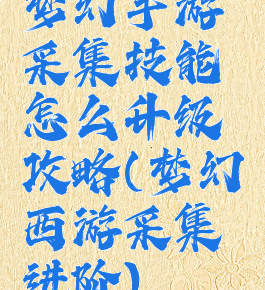 梦幻手游
采集技能
怎么升级
攻略(梦幻
西游采集
进阶)